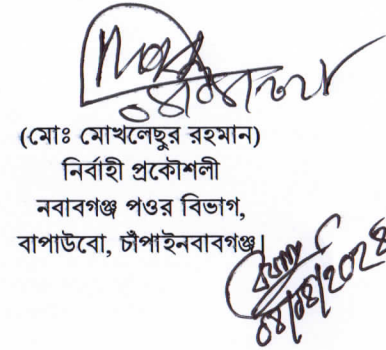 (মোঃ মোখলেছুর রহমান)
নির্বাহী প্রকৌশলী
নবাবগঞ্জ পওর বিভাগ,
বাপাউবো, চাঁপাইনবাবগঞ্জ।